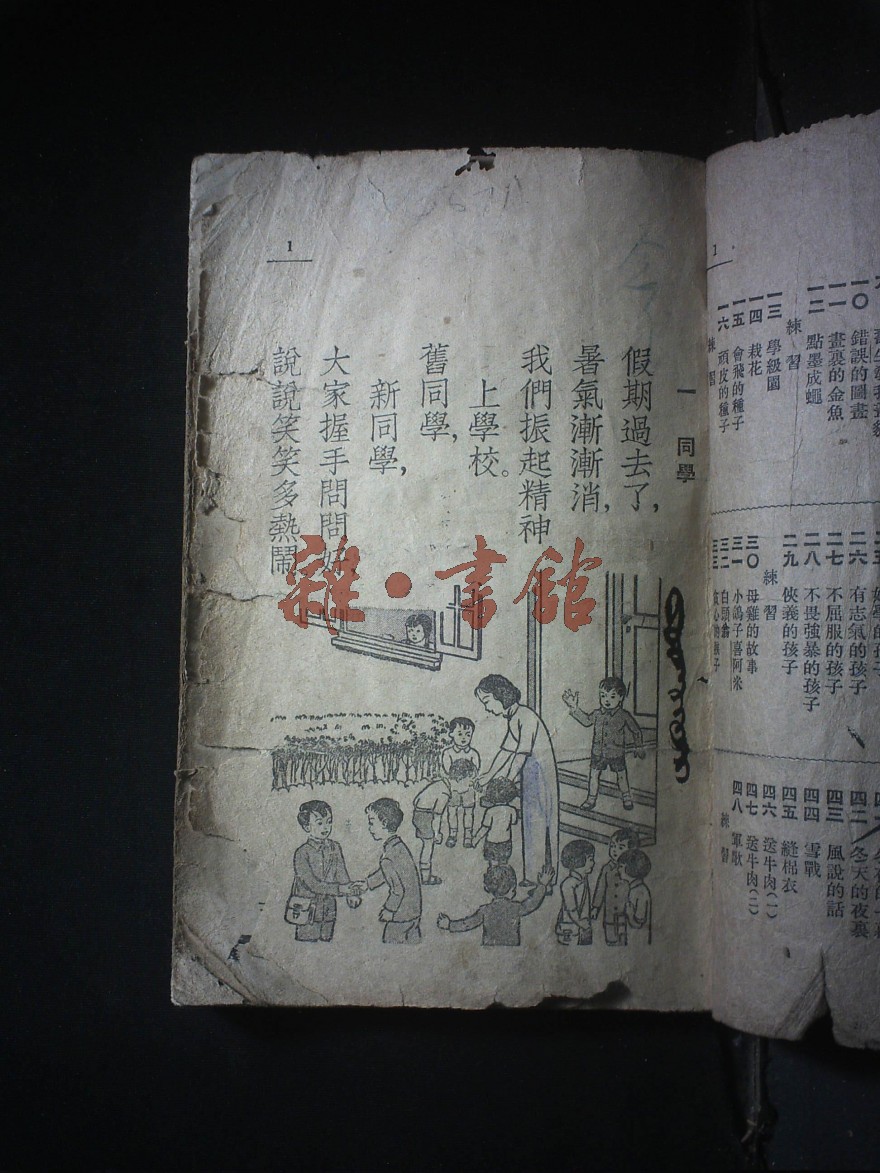 一〇 錯誤的圖畫
一一 畫裏的金魚
一二 點墨成蠅
練習
一三 學級園
一四 栽花
一五 會飛的種子
一六 頑皮的種子
練習
二五 好學的孩子
二六 有志氣的孩子
二七 不屈服的孩子
二八 不畏強暴的孩子
二九 俠義的孩子
練習
三〇 母雞的故事
三一 小鴿子喜阿米
三二 白頭翁
三三
四二 冬天的夜裏
四三 風說的話
四四 雪戰
四五 縫棉衣
四六 送牛肉(一)
四七 送牛肉(二)
四八 軍歌
練習
1
一 同學
假期過去了，
暑氣漸漸消，
我們振起精神
上學校。
舊同學，
新同學，
大家握手問問好，
說說笑笑多熱鬧
1
雜·書館